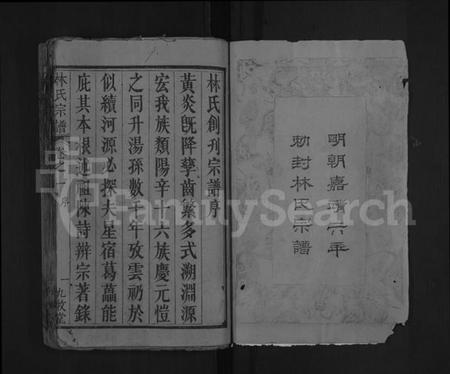 明朝嘉靖六年
勅封林氏宗譜
林氏創刊宗譜序
黃炎旣降孳齒繁多式溯淵源
宏我族類陽辛十六族慶元愷
之同升湯孫數千年攷雲礽於
似續河源必探夫星宿葛藟能
庇其本根述祖陳詩辨宗著錄
林氏宗譜
序
一
九牧堂
FamilySearch